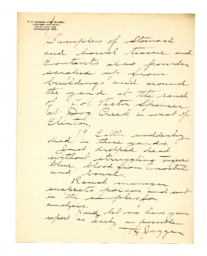 Samples of Stomach
and bowel tissue and
contents also powder
scraped up from
buildings and around
the yard at the ranch
of Col. Victor Spencer
at Dog Creek is west of
Clinton.
19 Cattle suddenly
died in these yards.
Just dropped dead
without struggling
blue blood from nostrils
and bowel.
Ranch manager
suspects poison and sent
in the samples for
analysis.
Kindly let me have your
report as early as possible